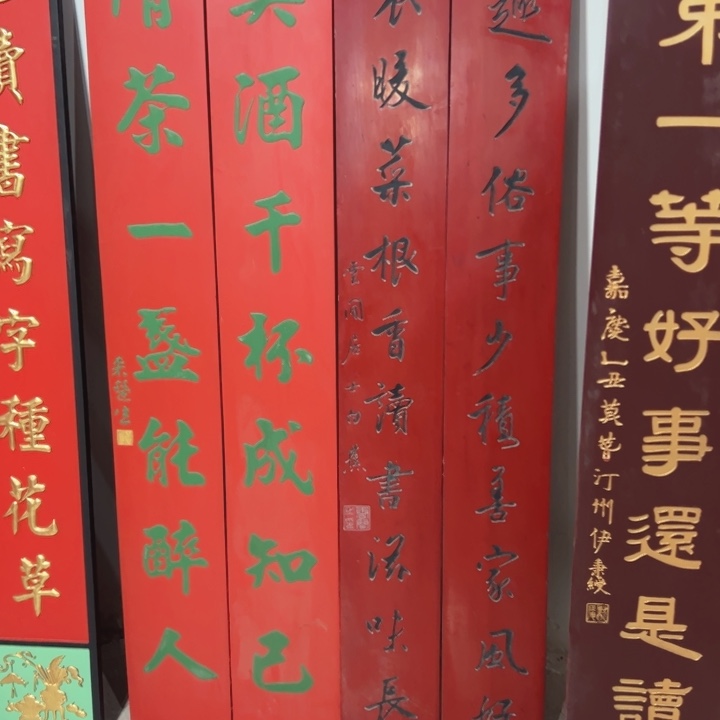 第一等好事還是讀
嘉慶乙丑莫春汀州伊秉綬
趣多俗事少積善家風好
衣暖菜根香讀書滋味長
美酒千杯成知己
清茶一盞能醉人
讀書寫字種花草